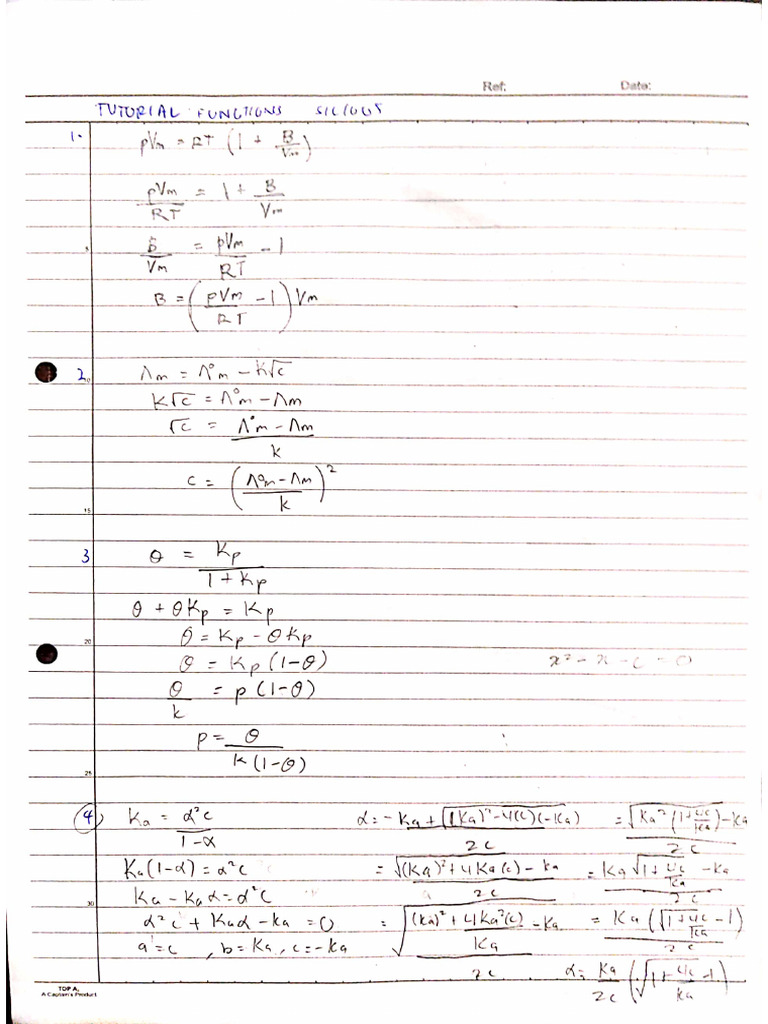 Ref: Date:
TUTORIAL FUNCTIONS SIC1005
1. pVm = RT (1 + B/Vm)
pVm/RT = 1 + B/Vm
5
B/Vm = pVm/RT - 1
B = (pVm/RT - 1) Vm
2 Λm = Λ°m - K√c
K√c = Λ°m - Λm
√c = (Λ°m - Λm)/k
c = ((Λ°m - Λm)/k)²
15
3 θ = Kp/(1 + Kp)
θ + θKp = Kp
20
θ = Kp - θKp
θ = Kp (1-θ) x² - x - c = 0
θ/k = p (1-θ)
p = θ/(k(1-θ))
25
4) Ka = α²c/(1-α)
Ka(1-α) = α²c
Ka - Kaα = α²c
30
α²c + Kaα - Ka = 0
a = c , b = Ka , c = -Ka
α = (-Ka + √((Ka)² - 4(c)(-Ka)))/2c
= (√((Ka)² + 4Ka(c)) - Ka)/2c
= (√(((Ka)² + 4Ka²(c))/Ka) - Ka)/2c
= (√(Ka²(1+4c/Ka)) - Ka)/2c
= (Ka√(1+4c/Ka) - Ka)/2c
= Ka(√(1+4c/Ka) - 1)/2c
α = Ka/2c (√(1+4c/Ka) - 1)
TOP A,
A Captain's Product